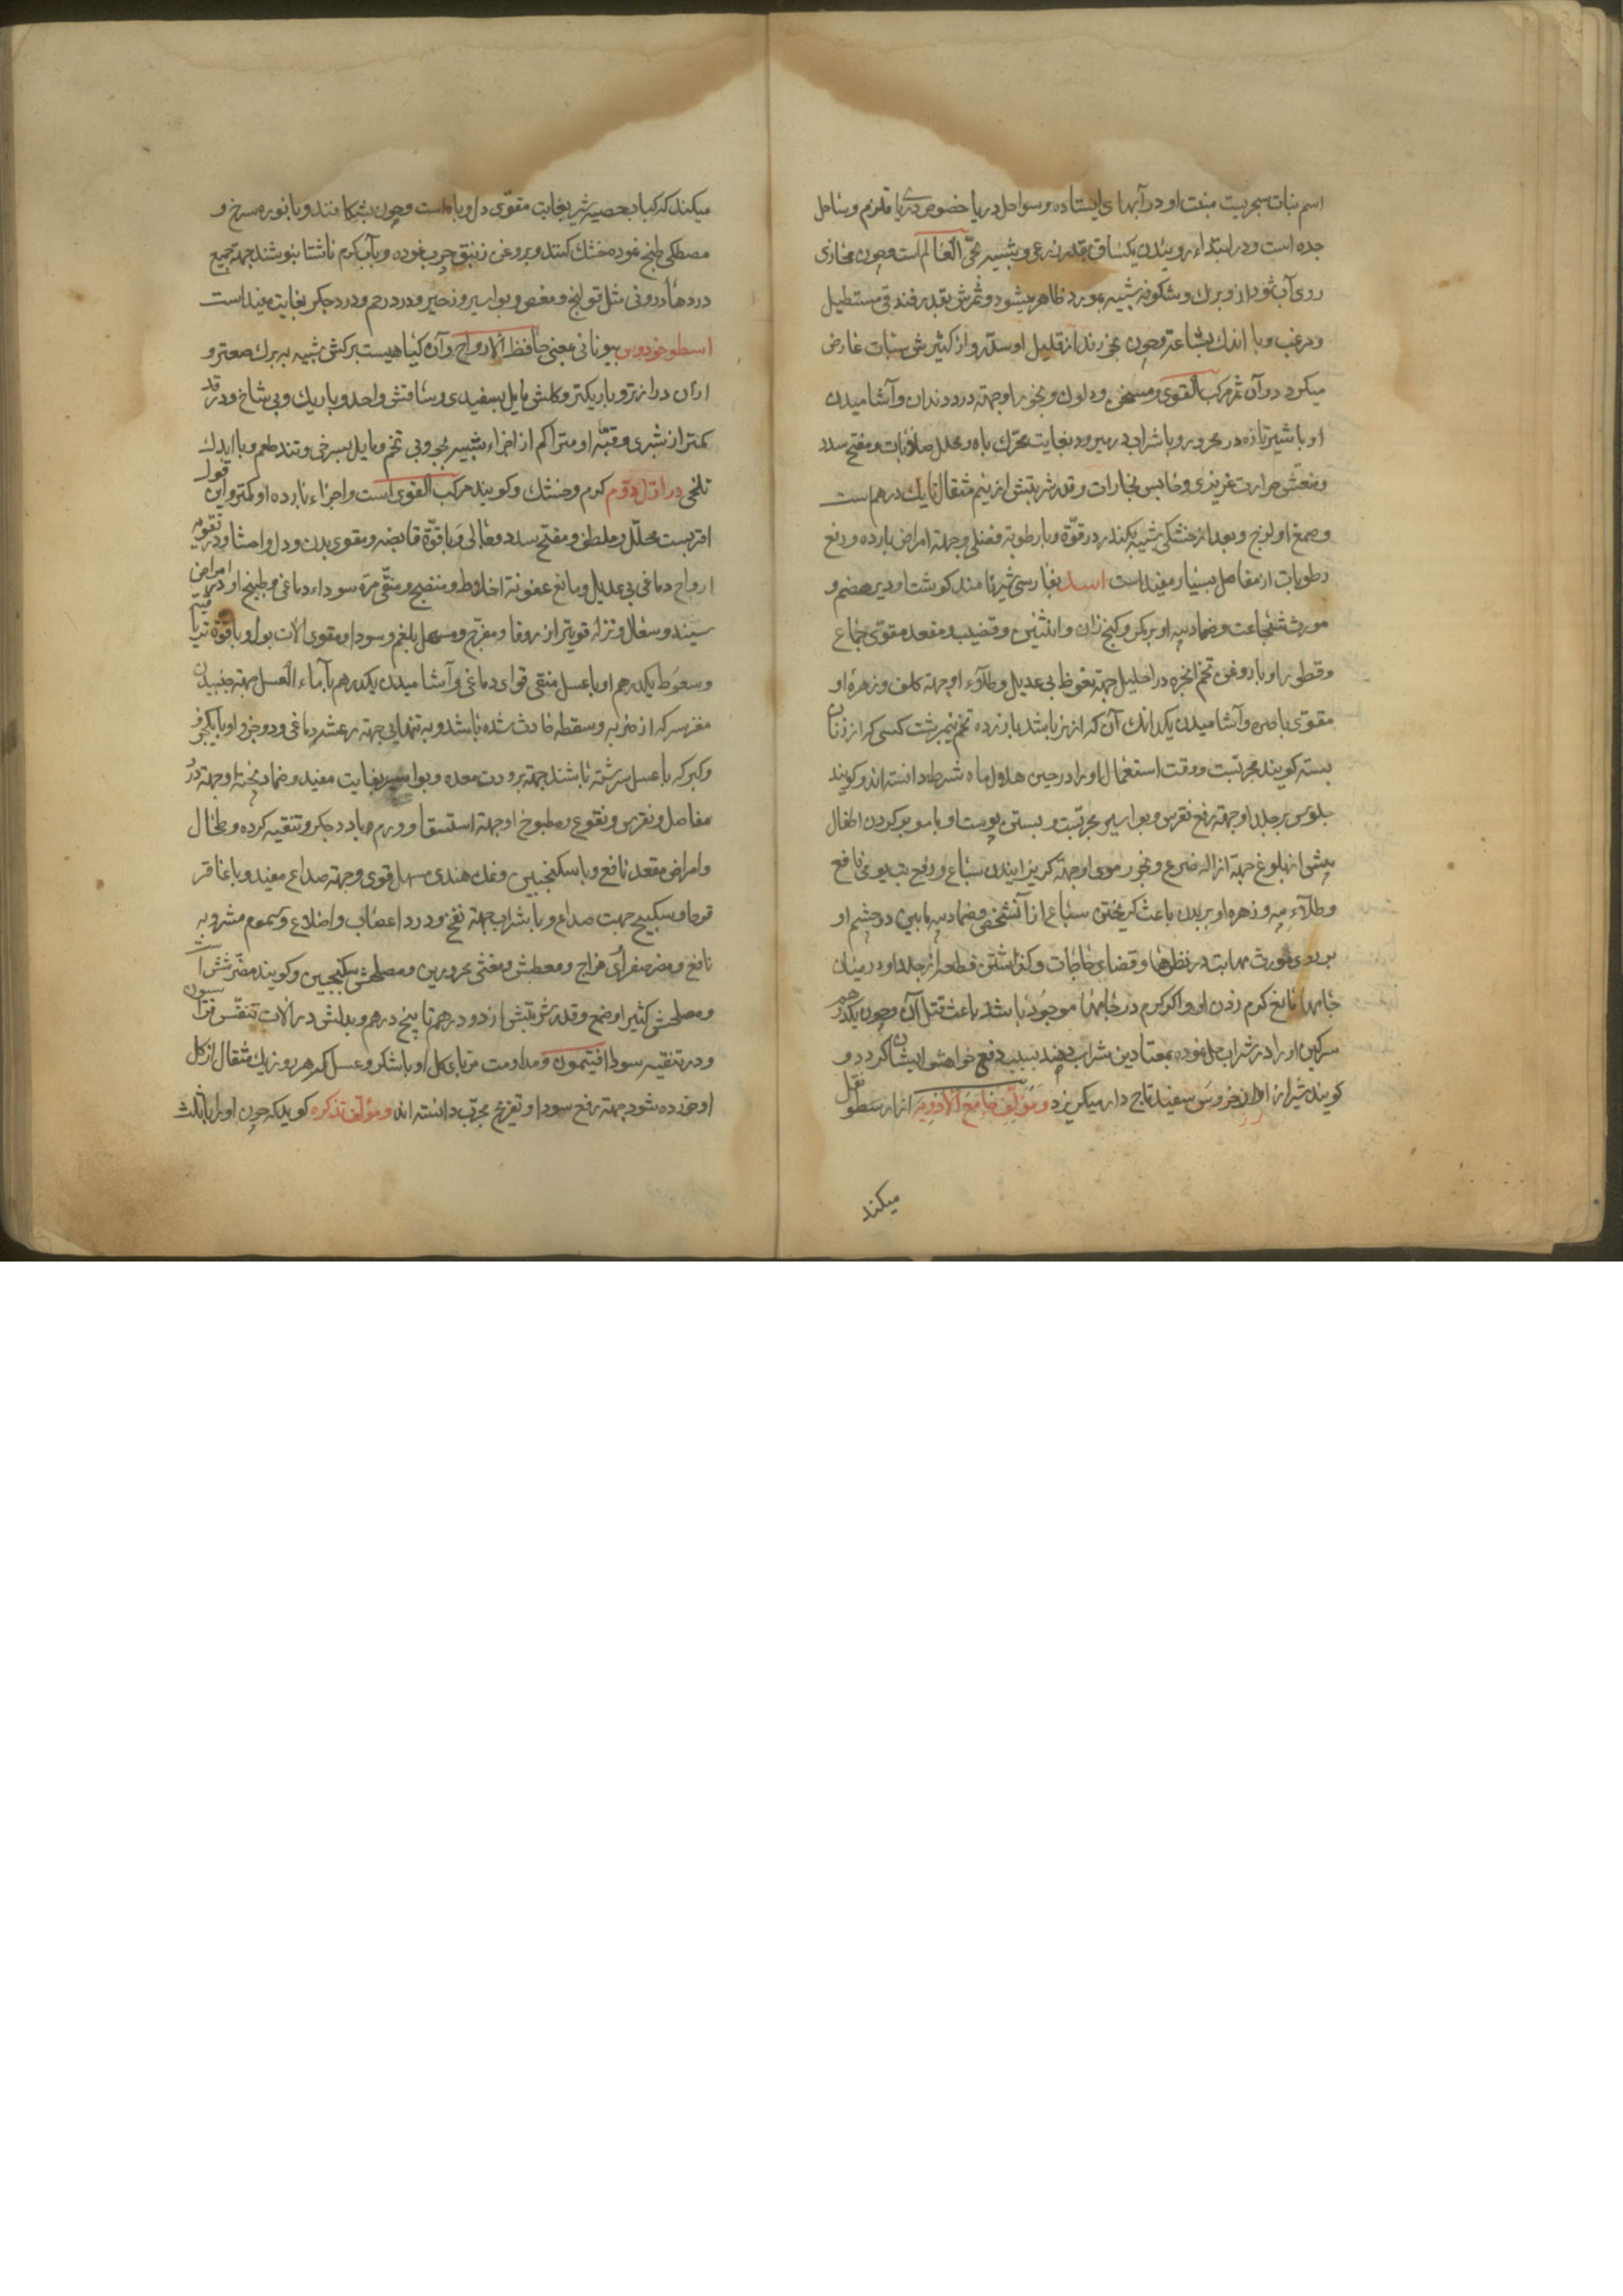 اسم نبات بحریست منبت او در آبهای ایستاده و سواحل دریا خصوص دریای قلزم و ساحل
جده است و در ابتداء روییدن یکساق بقدر ذرعی و شبیه بحی العالم است و چون محاذی
روی آب شود از و برک و شکوفه شبیه بمورد ظاهر میشود و ثمرش بقدر فندقی مستطیل
و مزغب و با اندک بشاعة و چون بخورند از قلیل او سدر و از کثیرش سبات عارض
میکردد و آن ثمر مرکب القوی و مسخن و دلوک و بخور او جهة درد دندان و آشامیدن
او با شیر تازه در محرور و با شراب در مبرود بغایت محرک باه و محلل صلابات و مفتح سدد
و منعش حرارت غریزی و حابس بخارات و قدر شربتش از نیم مثقال تا یک درهم است
و صمغ او لزج و بعد از خشکی شبیه بکندر در قوة و با رطوبة فضلی و جهة امراض بارده و رفع
رطوبات از مفاصل بسیار مفید است اسد بفارسی شیر نامند کوشت او دیر هضم و
مورث شجاعت و ضماد پیه او بر کمر و کنج ران و انثیین و قضیب و مقعد مقوی جماع
و قطور او با روغن تخم انجره در احلیل جهة نعوظ بی عدیل و طلاء او جهة کلف و زهره او
مقوی باصره و آشامیدن یکدانک آن که از نر باشد با زرده تخم نیمبرشت کسی که از زنان
بسته کویند مجربست و وقت استعمال او را در حین هلول ماه شرط دانسته اند و کویند
جلوس بر جلد او جهة رفع نقرس و بواسیر مجربست و بستن پوست او با مو بر کردن اطفال
پیش از بلوغ جهة ازاله صرع و بخور موی او جهة کریزانیدن سباع و رفع تب یومی نافع
و طلاء پیه و زهره او بر بدن باعث کریختن سباع از آنشخص و ضماد پیه مابین دو چشم او
بر روی مورث مهابت در نظرها و قضای حاجات و کذاشتن قطعه از جلد او در میان
جامها مانع کرم زدن او و اکر کرم در جامها موجود باشد باعث قتل آن و چون یکدرهم
سرکین او را در شراب حل نموده بمعتادین شراب دهند سبب دفع خواهش ایشان کردد و
کویند شیر از آواز خروس سفید تاج دار میکریزد و مؤلف جامع الادویه از ارسطو نقل
میکند
میکند که کباد بخصیه شیر بغایت مقوی دل و باه است و چون بشکافند و با بوره سرخ و
مصطکی طبخ نموده خشک کنند و بروغن زنبق چرب نموده و بآب کرم ناشتا بنوشند جهة جمیع
دردهای درونی مثل قولنج و مغص و بواسیر و زحیر و درد رحم و درد جکر بغایت مفید است
اسطوخودوس بیونانی بمعنی حافظ الارواح و آن کیاهیست برکش شبیه به برک صعتر و
از آن درازتر و باریکتر و کلش مایل بسفیدی و ساقش واحد و باریک و بی شاخ و در قد
کمتر از شبری و قبه او متراکم از اجزاء شبیه بجو و بی تخم و مایل بسرخی و تند طعم و با اندک
تلخی در اول دوم کرم و خشک و کویند مرکب القوی است و اجزاء بارده او کمتر و این قول
اقربست محلل و ملطف و مفتح سدد و جالی و با قوة قابضه و مقوی بدن و دل و احشا و در تقویه
ارواح دماغی بی عدیل و مانع عفونة اخلاط و منضج و منقی مره سوداء دماغی و طبیخ او در امراض
سینه و سعال و نزله قویتر از زوفا و مفرح و مسهل بلغم و سودا و مقوی آلات بول و با قوة تریاقیه
و سعوط یکدرهم او با عسل منقی قوای دماغی و آشامیدن یکدرهم با ماء العسل جهة جنبیدن
مغز سر که از ضربه و سقطه حادث شده باشد و به تنهایی جهة رعشه دماغی و دو جزو او با یکجزو
و کبر که با عسل سرشته باشند جهة برودت معده و بواسیر بغایت مفید و ضماد پختهٔ او جهة درد
مفاصل و نقرس و نقوع و مطبوخ او جهة استسقا و ورم بارد جکر و تنقیه کرده و طحال
و امراض مقعد نافع و با سکنجبین و نمک هندی مسهل قوی و جهة صداع مفید و با عاقر
قرحا و سکبینج جهت صداع و با شراب جهة نفخ و درد اعصاب و اضلاع و سموم مشروبه
نافع و مضر صفراوی مزاج و معطش و مغثی محرورین و مصلحش سکنجبین و کویند مضر شش است
و مصلحش کثیرا و صمغ و قدر شربتش از دو درهم تا پنج درهم و بدلش در آلات تنفس فراسیون
و در تنقیه سودا افتیمون و مداومت مربای کل او با شکر و عسل که هر روز یک مثقال از کل
او خورده شود جهة رفع سودا و تفریح مجرب دانسته اند و مؤلف تذکره کوید که چون او را با ثلث